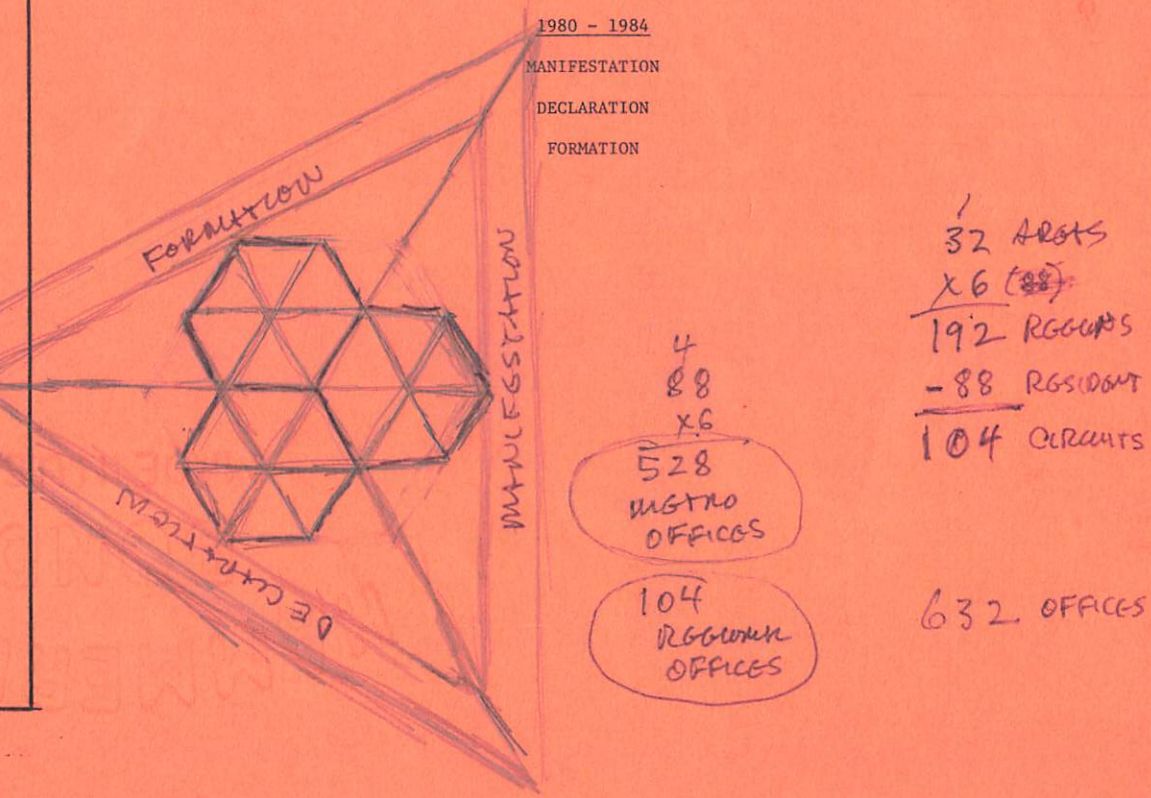 1980 - 1984
MANIFESTATION
DECLARATION
FORMATION
FORMATION
MANIFESTATION
DECLARATION
4
88
x6
528
METRO
OFFICES
104
OFFICES
1
32 AREAS
x6
192 REGIONS
-88 RESIDENT
104 CIRCUITS
632 OFFICES